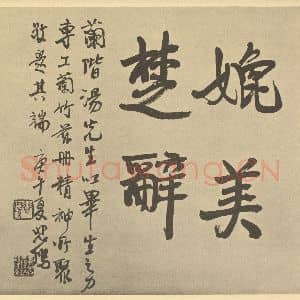 媲美
楚辭
蘭階湯先生以畢生之力
專工蘭竹茲冊精神所聚
敬題其端 庚午夏
Shufawang.CN